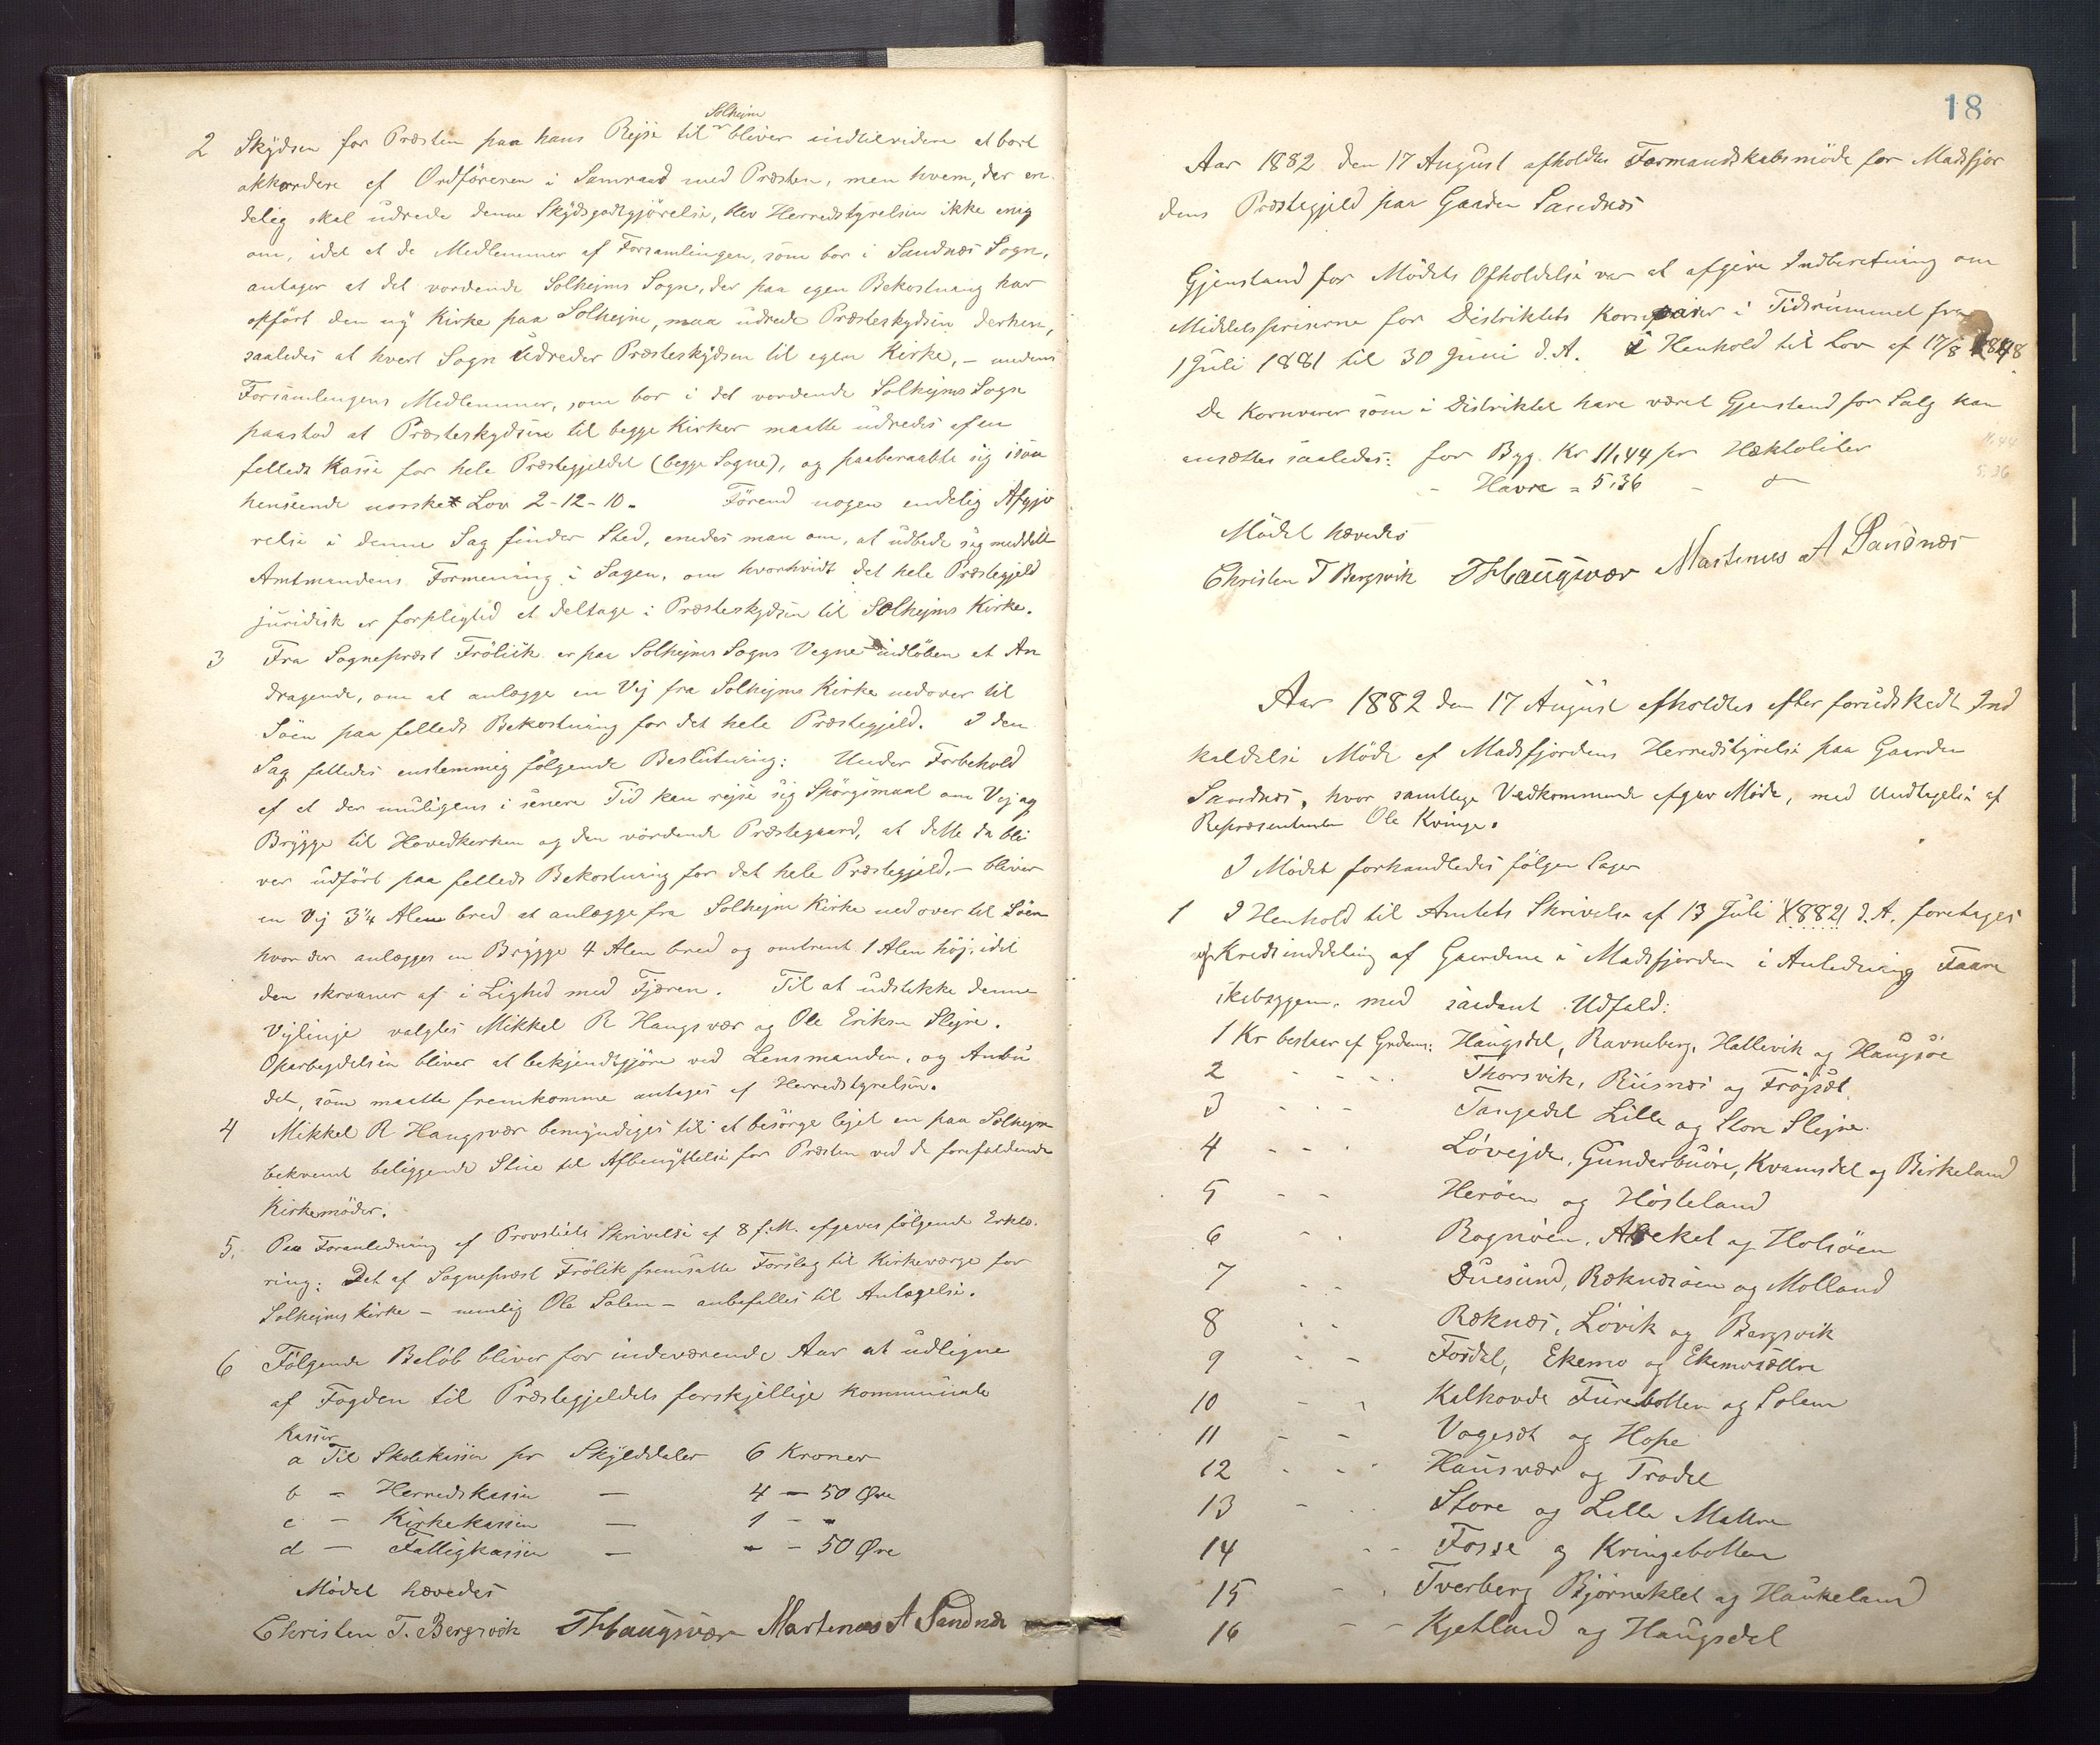 Solhejm
2 Skydsen for Præsten paa hans Rejse til bliver indtilvidere at bort
akkordere af Ordföreren i Samraad med Præsten, men hvem, der en-
delig skal udrede denne Skydsgodtgjörelse, blev Herredstyrelsen ikke enig
om, idet at de Medlemmer af Forsamlingen, som bor i Sandnæs Sogn,
antager at det vordende Solhejms Sogn, der paa egen Bekostning har
opfört den ny Kirke paa Solhejm, maa udrede Præsteskydsen derhen,
saaledes at hvert Sogn udreder Præsteskydsen til egen Kirke, – medens
Forsamlingens Medlemmer, som bor i det vordende Solhejms Sogn
paastod at Præsteskydsen til begge Kirker maatte udredes af en
fælleds Kasse for hele Præstegjeldet (begge Sogne), og paaberaabte sig i saa
henseende norske Lov 2-12-10. Förend nogen endelig Afgjö
relse i denne Sag finder Sted, enedes man om, at udbede sig meddelt
Amtmandens Formening i Sagen, om hvorhvidt det hele Præstegjeld
juridisk er forpligted at deltage i Præsteskydsen til Solhejms Kirke.
3 Fra Sognepræst Frölich er paa Solhejms Sogns Vegne indlöben et An
dragende, om at anlægge en Vej fra Solhejms Kirke nedover til
Söen paa fælleds Bekostning for det hele Præstegjeld. I den
Sag fattedes enstemmig fölgende Beslutning: Under Forbehold
af at der muligens i senere Tid kan rejse sig Spörgsmaal om Vej og
Brygge til Hovedkirken og den vordende Præstegaard, at dette da bli
ver udfört paa fælleds Bekostning for det hele Præstegjeld, – bliver
en Vej 3¼ Alen bred at anlægge fra Solhejm Kirke nedover til Söen
hvor der anlægges en Brygge 4 Alen bred og omtrent 1 Alen höj, idet
den skraaner af i Lighed med Fjæren. Til at udstikke denne
Vejlinje valgtes Mikkel R Haugsvær og Ole Eriksen Slejre.
Oparbejdelsen bliver at bekjendtgjöre ved Lensmanden, og Anbu
det, som maatte fremkomme antages af Herredstyrelsen.
4 Mikkel R Haugsvær bemyndiges til at besörge lejet en paa Solhejm
bekvemt beliggende Stue til Afbenyttelse for Præsten ved de forefaldende
Kirkemöder.
5. Paa Foranledning af Provstiets Skrivelse af 8 f.M. afgaves fölgende Erklæ-
ring: Det af Sognepræst Frölik fremsatte Forslag til Kirkeværge for
Solhejms kirke – nemlig Ole Solem – anbefalles til Antagelse.
6 Fölgende Belöb bliver for indeværende Aar at udligne
af Fogden til Præstegjeldets forskjellige kommunale
Kasser
a Til Skolekassen pr Skylddaler 6 Kroner
b – Herredskassen — 4 – 50 Øre
c – Kirkekassen — 1 – "
d – Fattigkassen — " – 50 Øre
Mödet hævedes
Christen T. Bergsvik THaugsvær Martenus A Sandnæs
18
Aar 1882 den 17 August afholdtes Formandskabsmöde for Masfjor
dens Præstegjeld paa Gaarden Sandnæs
Gjenstand for Mödets Afholdelse var at afgive Indberetning om
Middelspriserne for Distriktets Kornvarer i Tidsrummet fra
1 Juli 1881 til 30 Juni d.A. i Henhold til Lov af 17/8 1848.
De Kornvarer som i Distriktet have været Gjenstand for Salg kan
ansættes saaledes: for Byg Kr 11,44 pr Hæktoliter
11,44
- Havre = 5,36 - "
5,36
Mödet hævedes
Christen T Bergsvik THaugsvær Martenus A Sandnæs
Aar 1882 den 17 August afholdtes efter forudskedt Ind
kaldelse Möde af Masfjordens Herredstyrelse paa Gaarden
Sandnæs, hvor samtlige Vedkommende afgav Möde, med Undtagelse af
Repræsentanten Ole Kvinge.
I Mödet forhandledes fölgen Sager
1 I Henhold til Amtets Skrivelse af 13 Juli 1882 d.A. foretages
Kredsinddeling af Gaardene i Masfjorden i Anledning Faare
skabsygen, med saadant Udfald:
1 Kr bestaar af Grdene: Haugsdal, Ravneberg, Hallevik og Haugsöe
2 - - - Thorsvik, Riisnæs og Fröjsæt
3 - - - Tangedal Lille og Store Slejre
4 - - - Lövejde, Gunderbuöre, Kvamsdal og Birkeland
5 - - Heröen og Hosteland
6 - - Rognöen, Abekel og Holsöen
7 - - Duesund, Ræknæsöen og Molland
8 - - Ræknæs, Lövik og Bergsvik
9 - - Fosdal, Ekemo og Ekemosætere
10 - - Kalhovde Furebotten og Solem
11 - - Vagesæt og Hope
12 - - - Haugsvær og Trodal
13 - - Store og Lille Matre
14 - - Fosse og Kringebotten
15 - - Tverberg Björneklet og Haukeland
16 - - Kjetland og Haugsdal